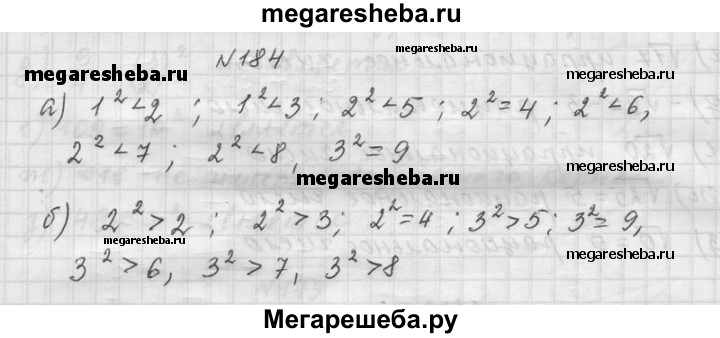 megaresheba.ru
№184
megaresheba.ru
megaresheba.ru
а) 1²<2 ; 1²<3 ; 2²<5 ; 2²=4 ; 2²<6,
2²<7 ; 2²<8, 3²=9
megaresheba.ru
megaresheba.ru
б) 2²>2 ; 2²>3; 2²=4 ; 3²>5; 3²=9,
megaresheba.ru
megaresheba.ru
3²>6, 3²>7, 3²>8
Мегарешеба.ру